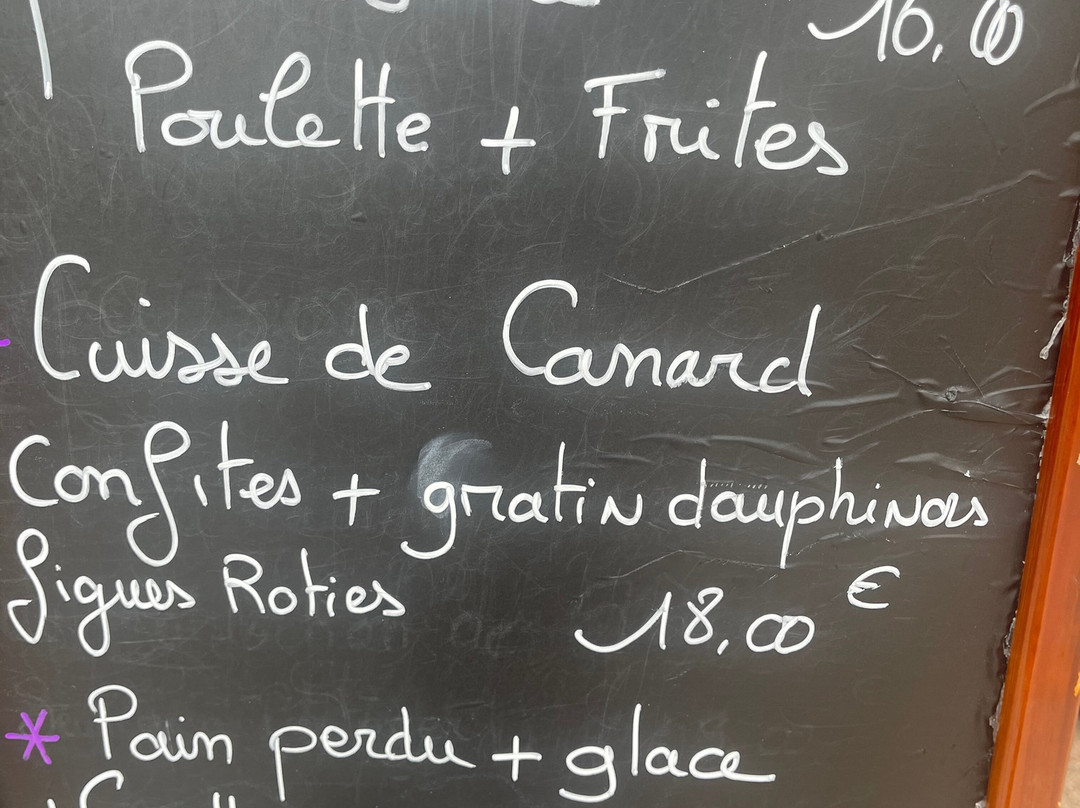 16,00
Poulette + Frites
Cuisse de Canard
Confites + gratin dauphinois
figues Roties 18,00 €
* Pain perdu + glace